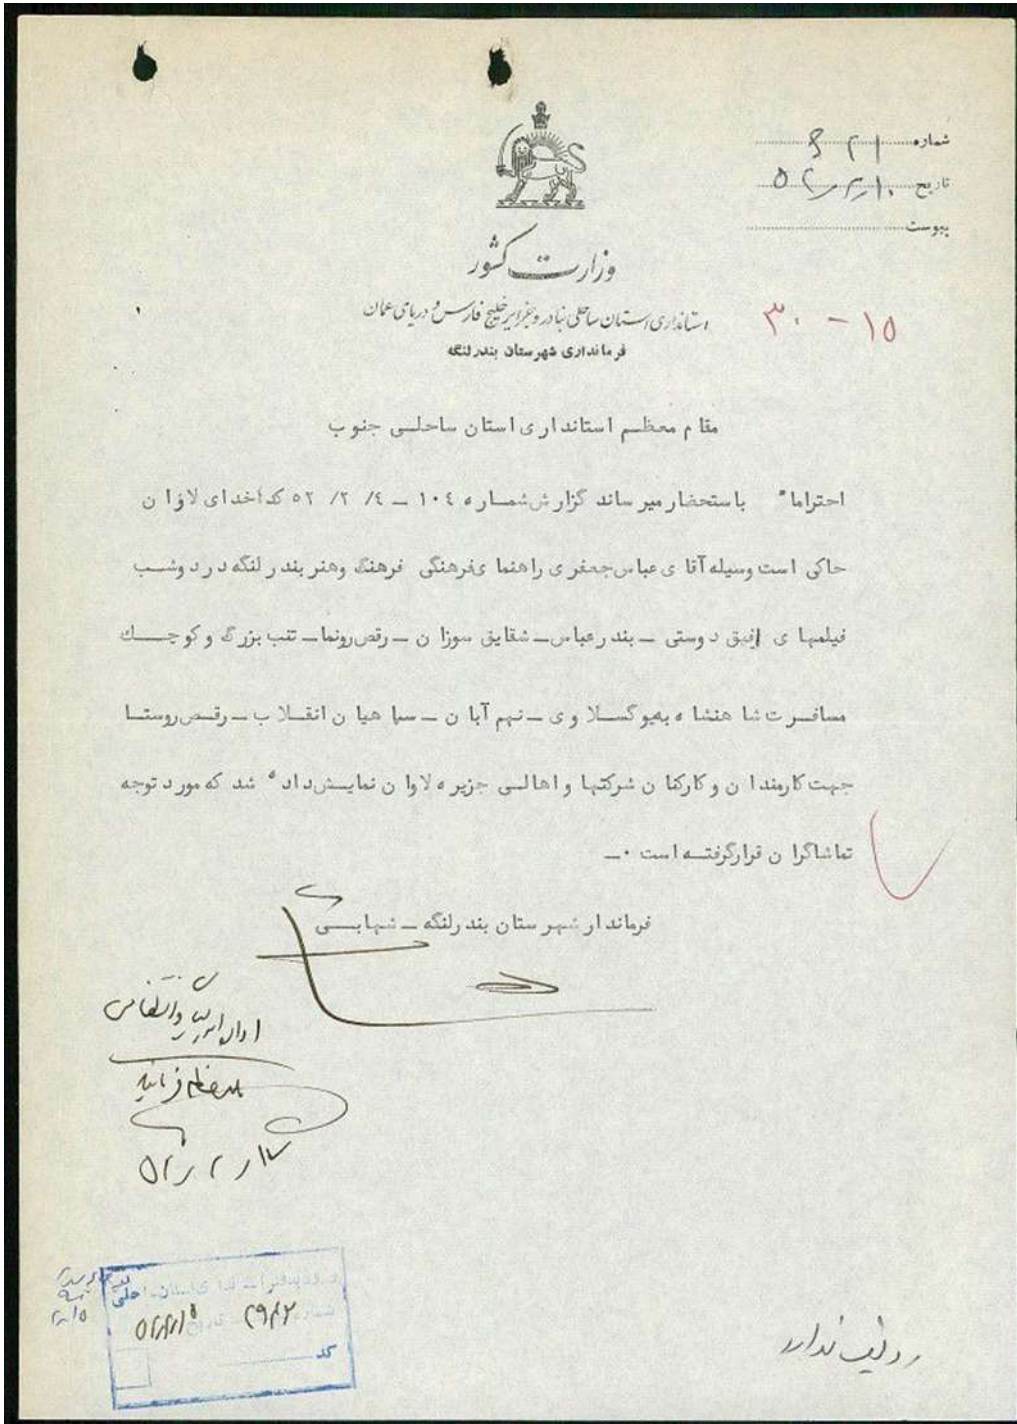 شماره ۶۲۱
تاریخ ۵۲/۲/۱۰
پیوست
وزارت کشور
استانداری استان ساحلی بنادر و جزایر خلیج فارس و دریای عمان
فرمانداری شهرستان بندرلنگه
۱۵ - ۳۰
مقام معظم استانداری استان ساحلی جنوب
احتراما" باستحضار میرساند گزارش شماره ۱۰٤ ــ ٤/ ۲/ ۵۲ کدخدای لاوان
حاکی است وسیله آقای عباس جعفری راهنمای فرهنگی فرهنگ وهنر بندرلنگه در دوشب
فیلمهای افق دوستی ــ بندرعباس ــ شقایق سوزان ــ رقص رونما ــ تنب بزرگ و کوچك
مسافرت شاهنشاه به یوگسلاوی ــ نهم آبان ــ سپاهیان انقلاب ــ رقص روستا
جهت کارمندان و کارکنان شرکتها و اهالی جزیره لاوان نمایش داده شد که مورد توجه
تماشاگران قرارگرفته است ۰ــ
فرماندار شهرستان بندرلنگه ــ شهابی
ملاحظه فرمایید
استان ساحلی
شماره ۲۹۴۲ تاریخ
کد
ردیف ندارد